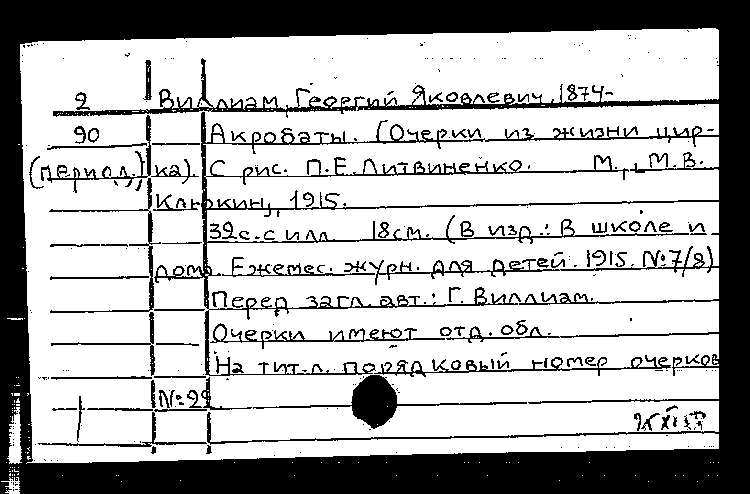 2 Виллиам, Георгий Яковлевич, 1874-
90 Акробаты. (Очерки из жизни цир-
(период.) ка). С рис. П.Е.Литвиненко. М., М.В.
Клюкин, 1915.
32с. с илл. 18см. (В изд.: В школе и
дома. Ежемес. журн. для детей. 1915. №7/8)
Перед загл. авт.: Г. Виллиам.
Очерки имеют отд. обл.
На тит.л. порядковый номер очерков
№29